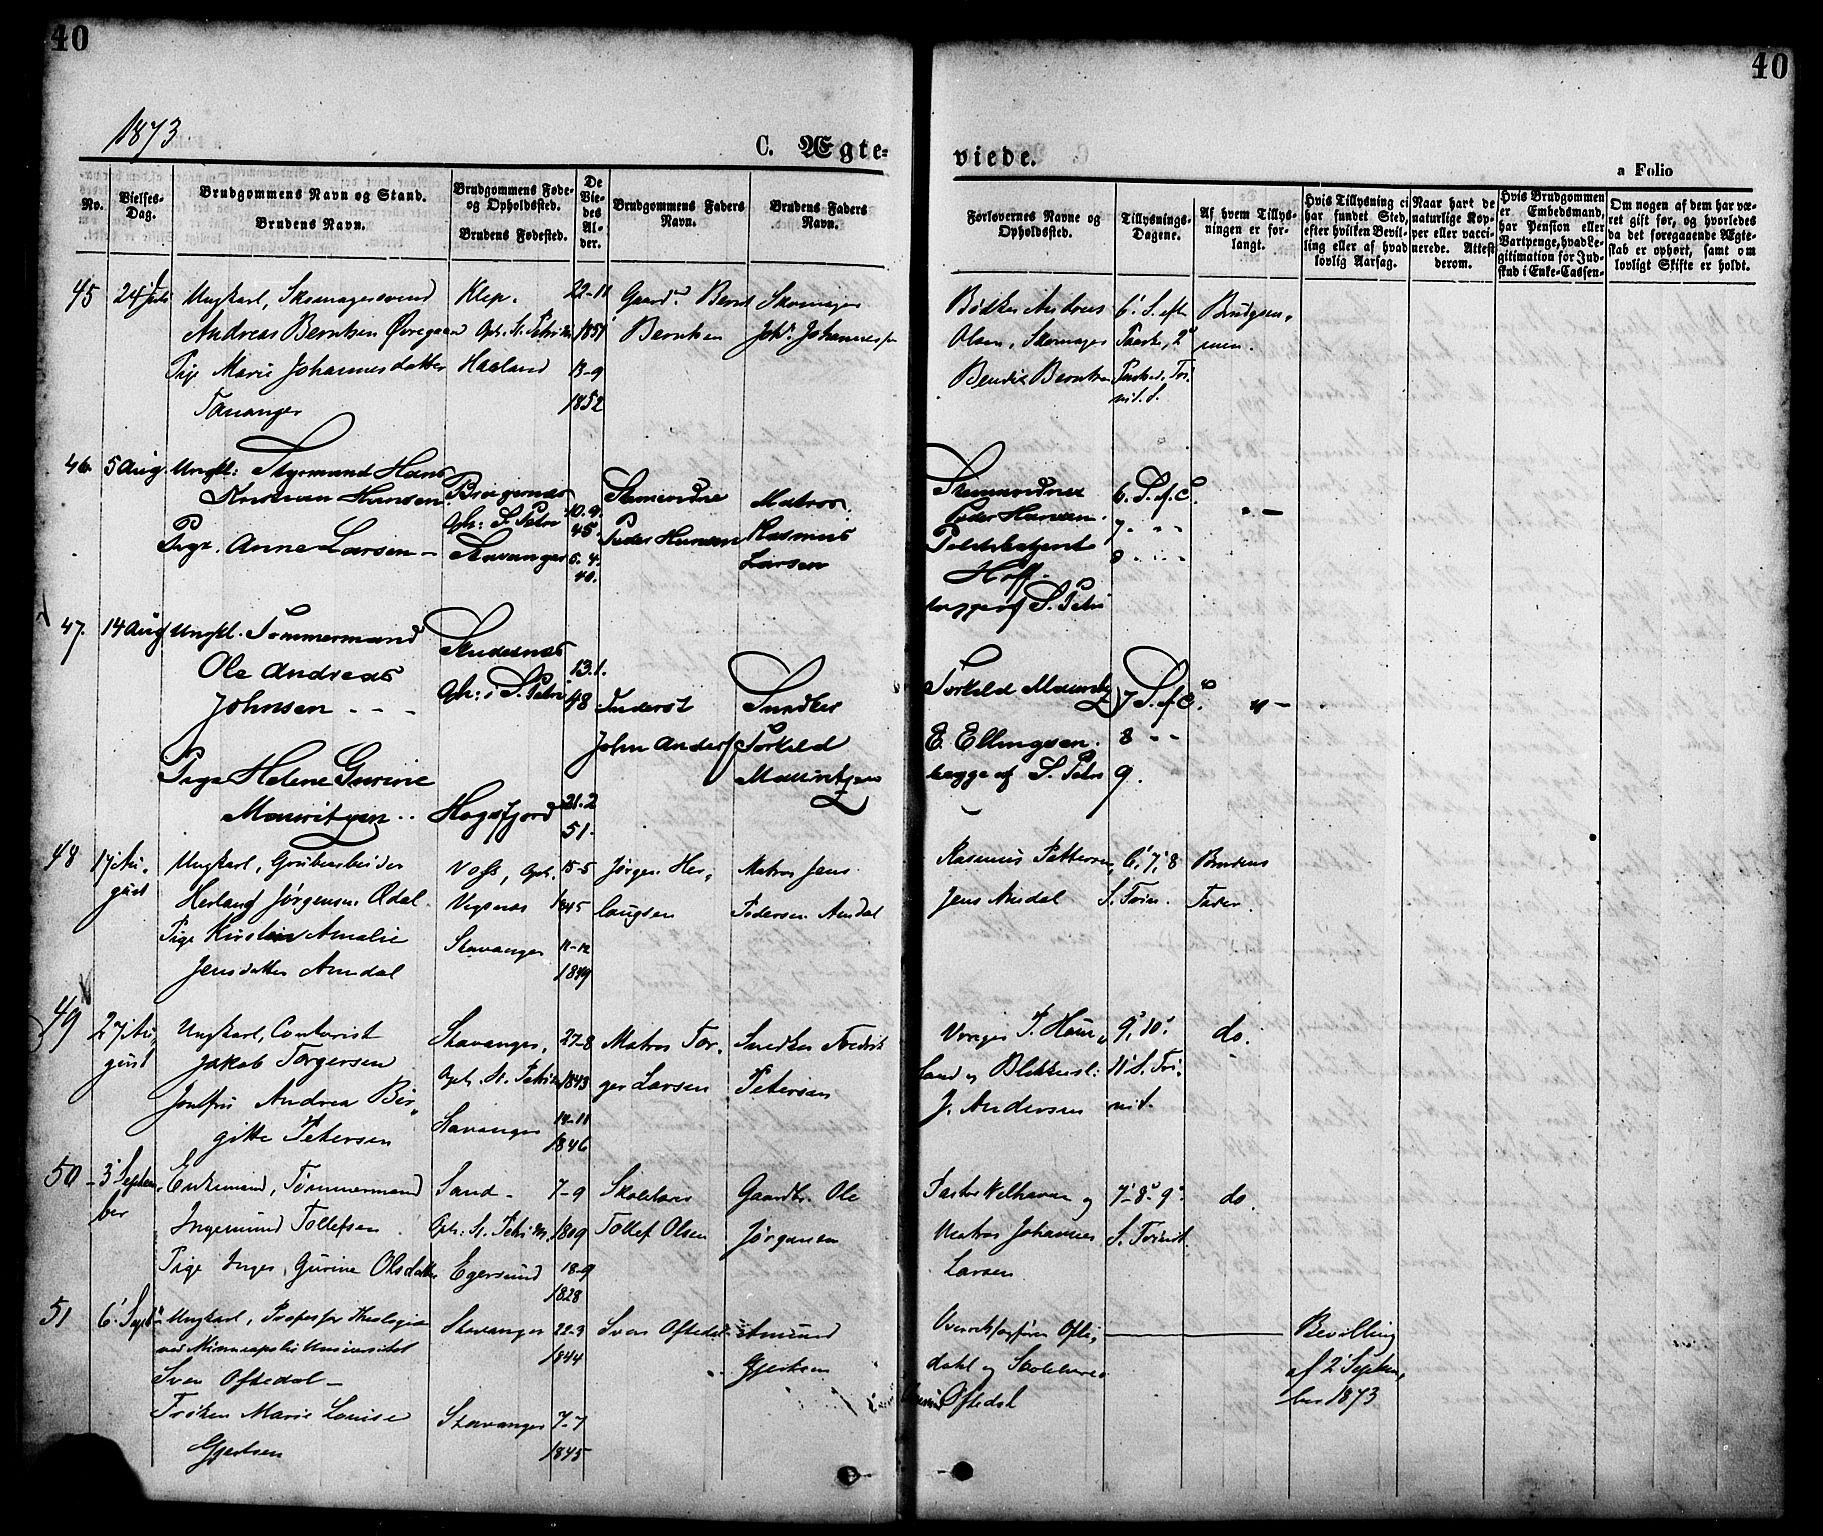 40
40
1873
C. Ægte-
viede.
a Folio
No.
Vielses-
Dag.
Brudgommens Navn og Stand.
Brudens Navn.
Brudgommens Føde-
og Opholdssted.
Brudens Fødested.
De
Vie-
des
Al-
der.
Brudgommens Faders
Navn.
Brudens Faders
Navn.
Forlovernes Navne og
Opholdssted.
Tillysnings-
Dagene.
Af hvem Tillys-
ningen er for-
langt.
Hvis Tillysning ei
har fundet Sted,
efter hvilken Bevil-
ling eller af hvad
lovlig Aarsag.
Naar hart de
naturlige Kop-
per eller vacci-
nerede. Attest
derom.
Hvis Brudgommen
er Embedsmand,
har Pension eller
Vartpenge, hvad Le-
gitimation for Ind-
skud i Enke-Cassen-
Om nogen af dem har væ-
ret gift før, og hvorledes
da det foregaaende Ægte-
skab er ophørt, samt om
lovligt Skifte er holdt.
45
24 Juli
Ungkarl, Skomagersvend
Andreas Berntsen Øvregaard
Pige Marie Johannesdatter
Tananger
Klep.
Oph. St. Petri M.
Haaland
22-11
1851
13-9
1852
Gaardm. Bernt
Berntsen
Skomager
Johs. Johannessen
Bødker Andreas
Olsen, Skomager
Bendix Berntsen
6' S. efter
Paaske, 2d
Pintsed., Tri-
nit. S.
Brudgom-
men.
46.
5 Aug.
Ungkl: Styrmand Hans
Kristian Hansen
Pige. Anne Larsen -
Bragernæs
Oph: S. Petri
Stavanger
10.9.
45.
5. 4.
40.
Peder Hansen
Matros
Rasmus
Larsen
Peder Hansen.
Politibetjent
Hoff.
begge af S. Petri
6. S. e. T.
7 " "
8 " "
" -
47.
14 Aug
Ungkl. Tømmermand
Ole Andreas
Johnsen - - -
Pige Helene Gurine
Mauritzen ..
Skudesnæs
Oph: i S. Petri
Høgsfjord
13.1.
48
21.2
51.
Inderst
John Anders
Snedker
Torkild
Mauritzen
Torkild Mauritz
E. Ellingsen.
begge af S. Petri
7 S. e. T.
8 " "
9.
" -
48
17 Au-
gust
Ungkarl, Grubearbeider
Herlaug Jørgensen Odal
Pige Kirstine Amalie
Jensdatter Aredal
Voss, Oph.
Vigsnæs
Stavanger
15-5
1845
11-12
1849
Jørgen Her-
laugsen
Matros Jens
Pedersen Aredal
Rasmus Pettersen,
Jens Aredal
6', 7', 8
S. Trin.
Brudens
Fader.
49
27 Au-
gust
Ungkarl, Contorist
Jakob Torgersen
Jomfru Andrea Bir-
gitte Petersen
Stavanger,
Oph. St. Petri M.
Stavanger
27-8
1843
14-11
1846
Matros Tor-
ger Larsen
Snedker Fredrik
Petersen
Verger T. Haa-
land og Blikkensl:
J. Andersen
9', 10'
11' S. Tri-
nit.
do.
50
3' Septem-
ber
Enkemand, Tømmermand
Ingemund Tollefsen
Pige Inger Gurine Olsdatter
Sand -
Oph: St. Petri M.
Egersund
7-9
1809
18-9
1828
Skolelærer
Tollef Olsen
Gaardbr. Ole
Jørgensen
Pastor Welhaven og
Matros Johannes
Larsen
7'-8'-9'
S. Trinit.
do.
51
6' Septbr
Ungkarl, Professor Theologiæ
ved Minneapolis Universitet
Sven Oftedal -
Frøken Marie Louise
Gjertsen
Stavanger
Stavanger
22-3
1844
7-7
1845
Sven Oftedal
Amund
Gjertsen
Overretssagfører Ofte-
dahl og Skolelærer
Oftedal
Bevilling
af 2' Septem-
ber 1873